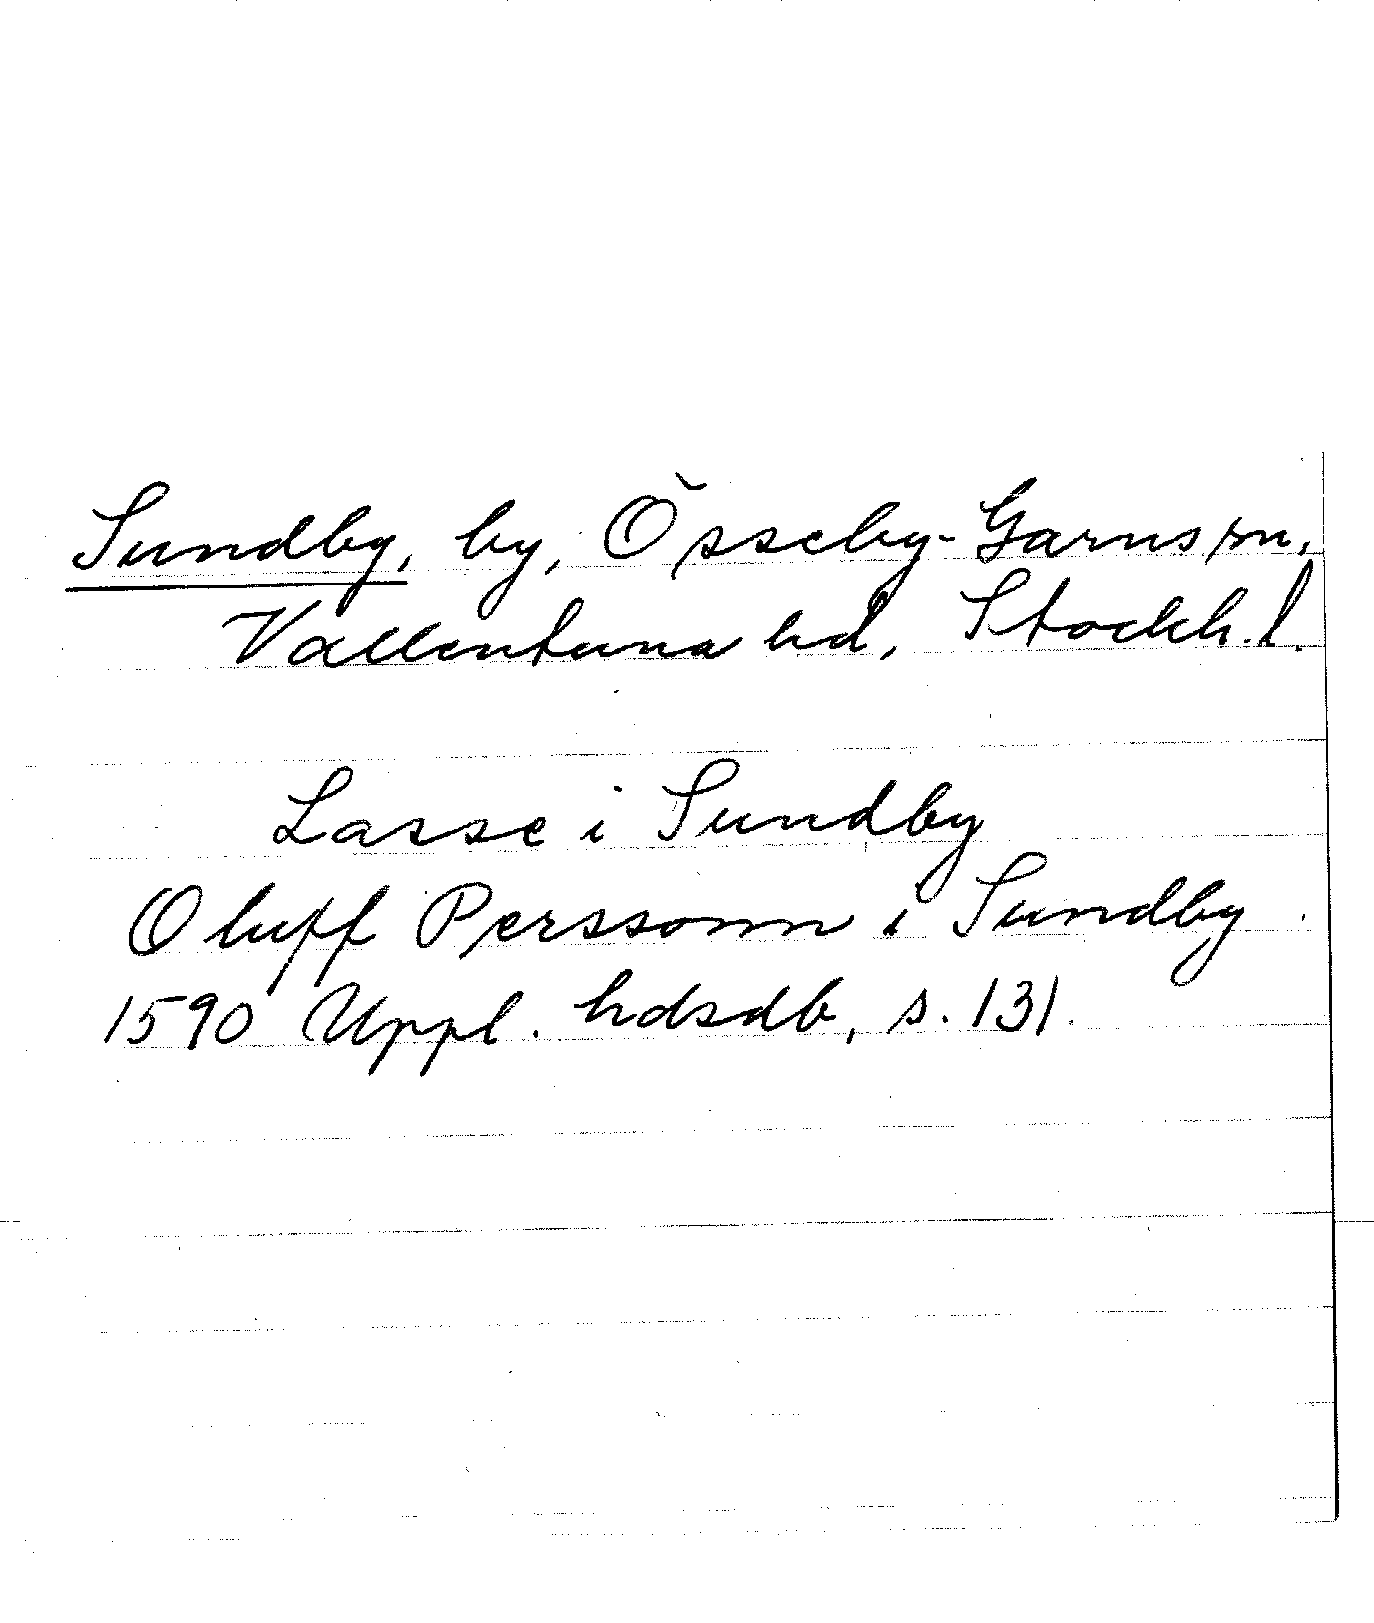 Sundby, by, Össeby-Garns sn,
Vallentuna hd, Stockh. l.
Lasse i Sundby
Oluff Perssonn i Sundby
1590 Uppl. hdsdb, s. 131.